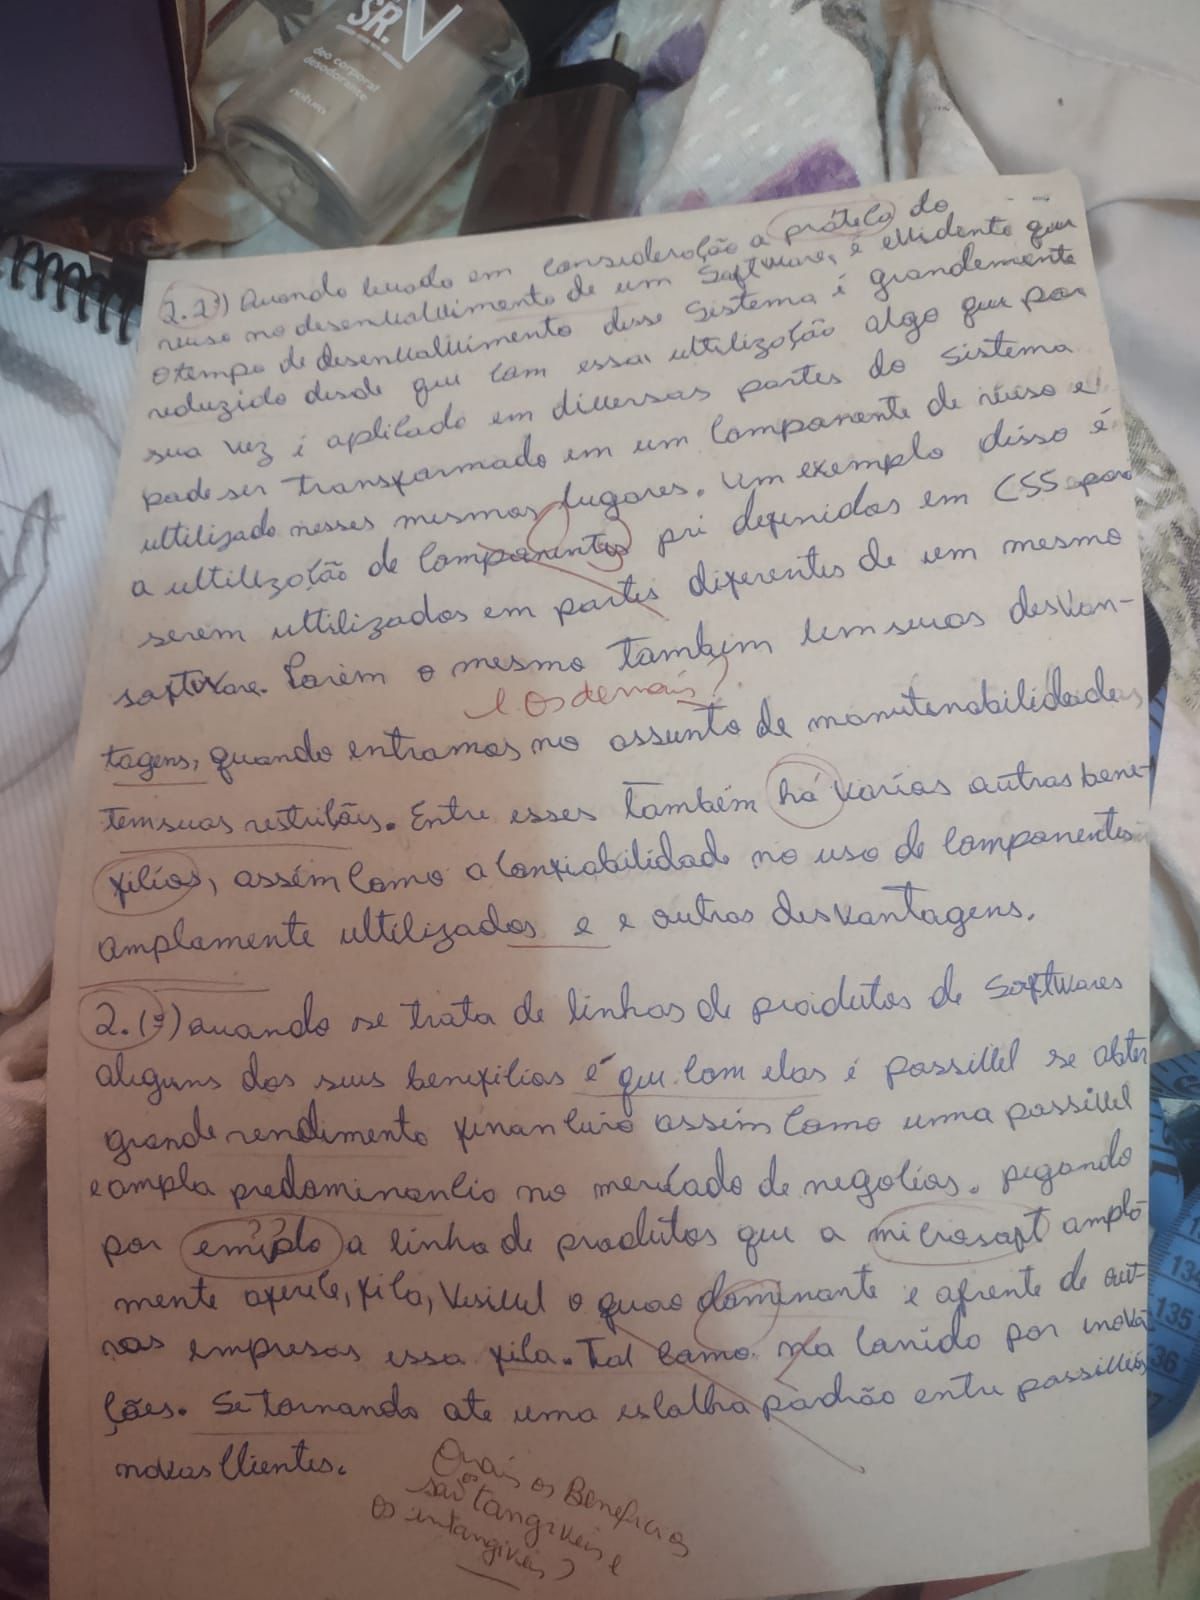 SR. N
deo corporal
desodorante
natura
2.2º) Quando levado em consideração a prátila do
reuso no desenvolvimento de um Software, é evidente que
o tempo de desenvolvimento desse Sistema é grandemente
reduzido desde que com essa ultilização algo que por
sua vez é aplicado em diversas partes do sistema
pode ser transformado em um componente de reuso e
ultilizado nesses mesmos lugares. Um exemplo disso é
a ultilização de componentes pré definidos em CSS para
serem ultilizados em partes diferentes de um mesmo
software. Porém o mesmo também tem suas desvan-
e os demais?
tagens, quando entramos no assunto de manutenabilidades
tem suas restrições. Entre esses também há varias outras bene-
fícios, assém como a confiabilidade no uso de componentes
amplamente ultilizados e e outras desvantagens.
2.1º) Quando se trata de linhas de produtos de Softwares
alguns dos seus benefícios é que com elas é possivel se obter
grande rendimento financeiro assim como uma possivel
e ampla predominancia no mercado de negócios. pegando
por emxplo a linha de produtos que a microsoft ampla
mente oferece, fica, visivel o quao dominante e afrente de out-
ras empresas essa fica. Tal como na corrida por inova
ções. Se tornando ate uma escolha padrão entre possiveis
novos clientes.
Quais os Beneficios
são os tangiveis e
os intangiveis?
134
135
36